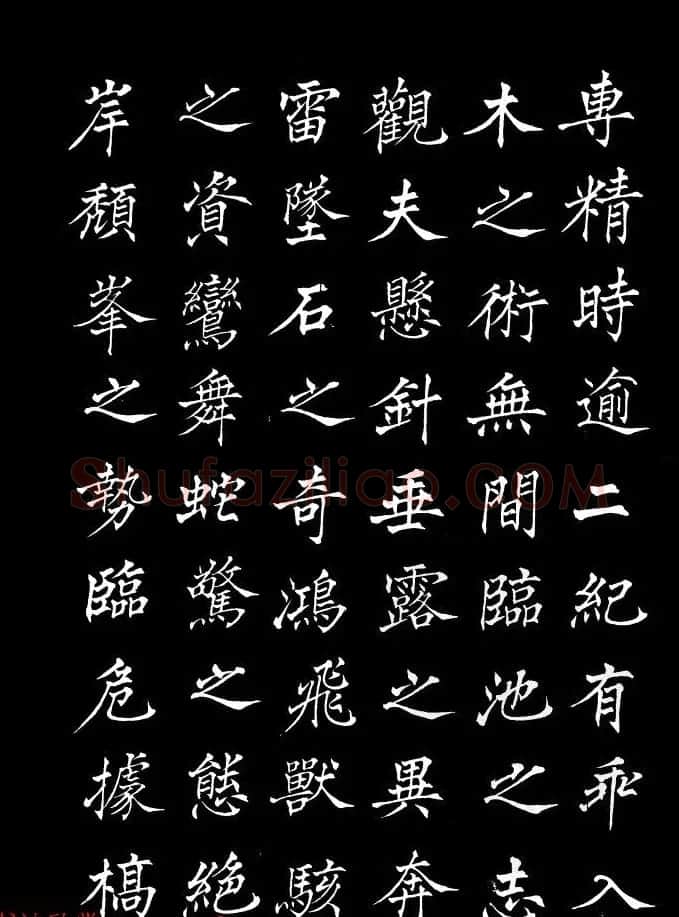 專精時逾二紀有乖入
木之術無間臨池之志
觀夫懸針垂露之異奔
雷墜石之奇鴻飛獸駭
之資鸞舞蛇驚之態絕
岸頹峯之勢臨危據槁
Shufaziliao.COM